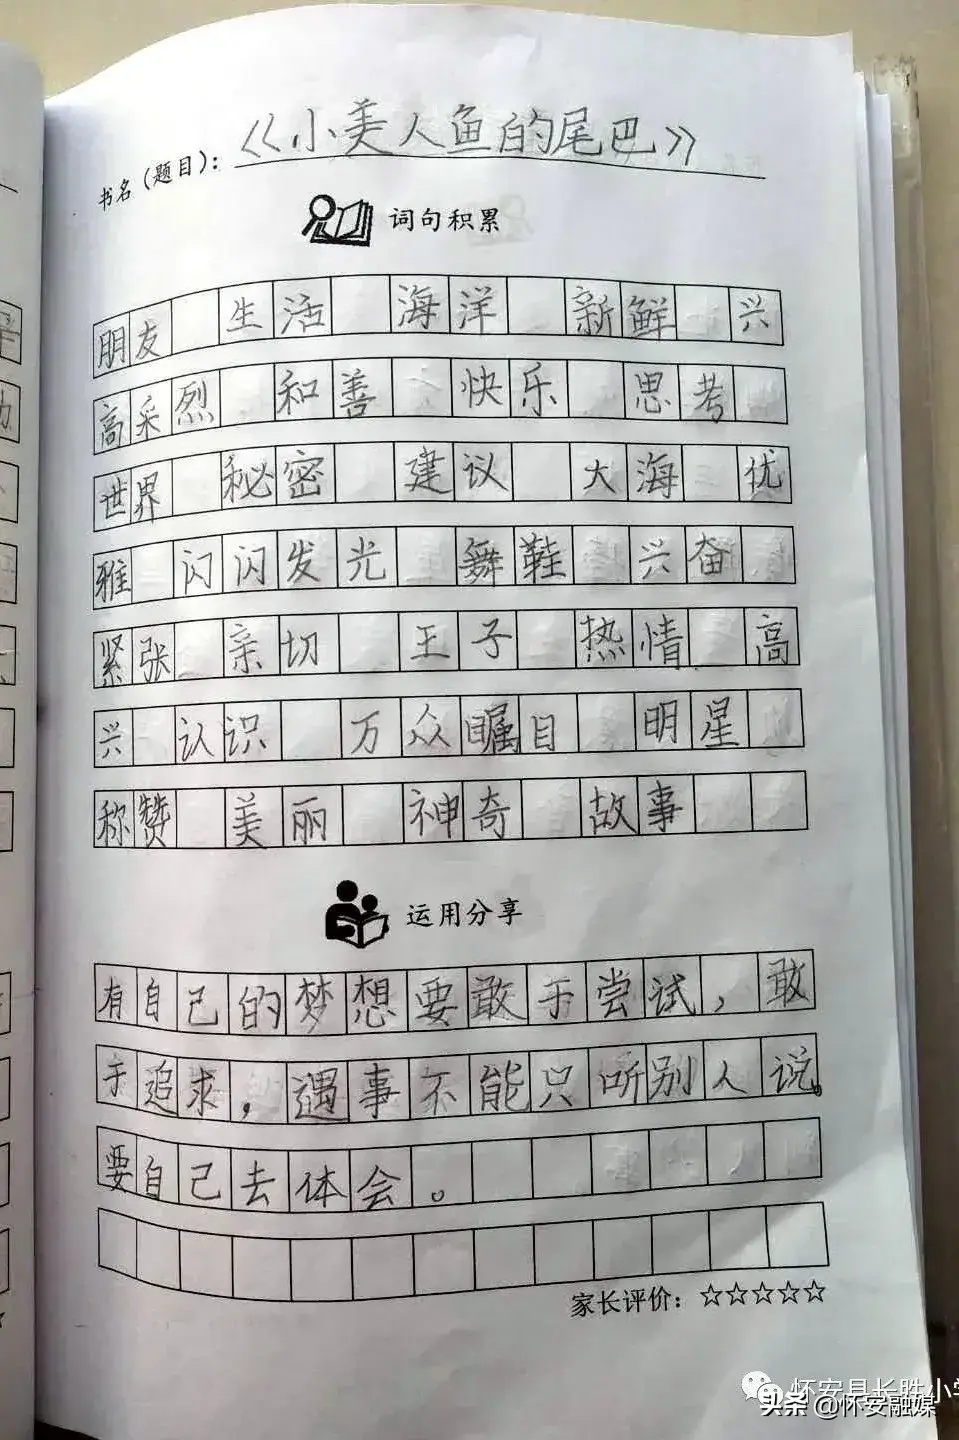 书名（题目）：《小美人鱼的尾巴》
词句积累
朋友 生活 海洋 新鲜 兴
高采烈 和善 快乐 思考
世界 秘密 建议 大海 优
雅 闪闪发光 舞鞋 兴奋
紧张 亲切 王子 热情 高
兴 认识 万众瞩目 明星
称赞 美丽 神奇 故事
运用分享
有自己的梦想要敢于尝试，敢
于追求，遇事不能只听别人说。
要自己去体会。
家长评价：☆☆☆☆☆
怀安县长胜小学
头条 @怀安融媒